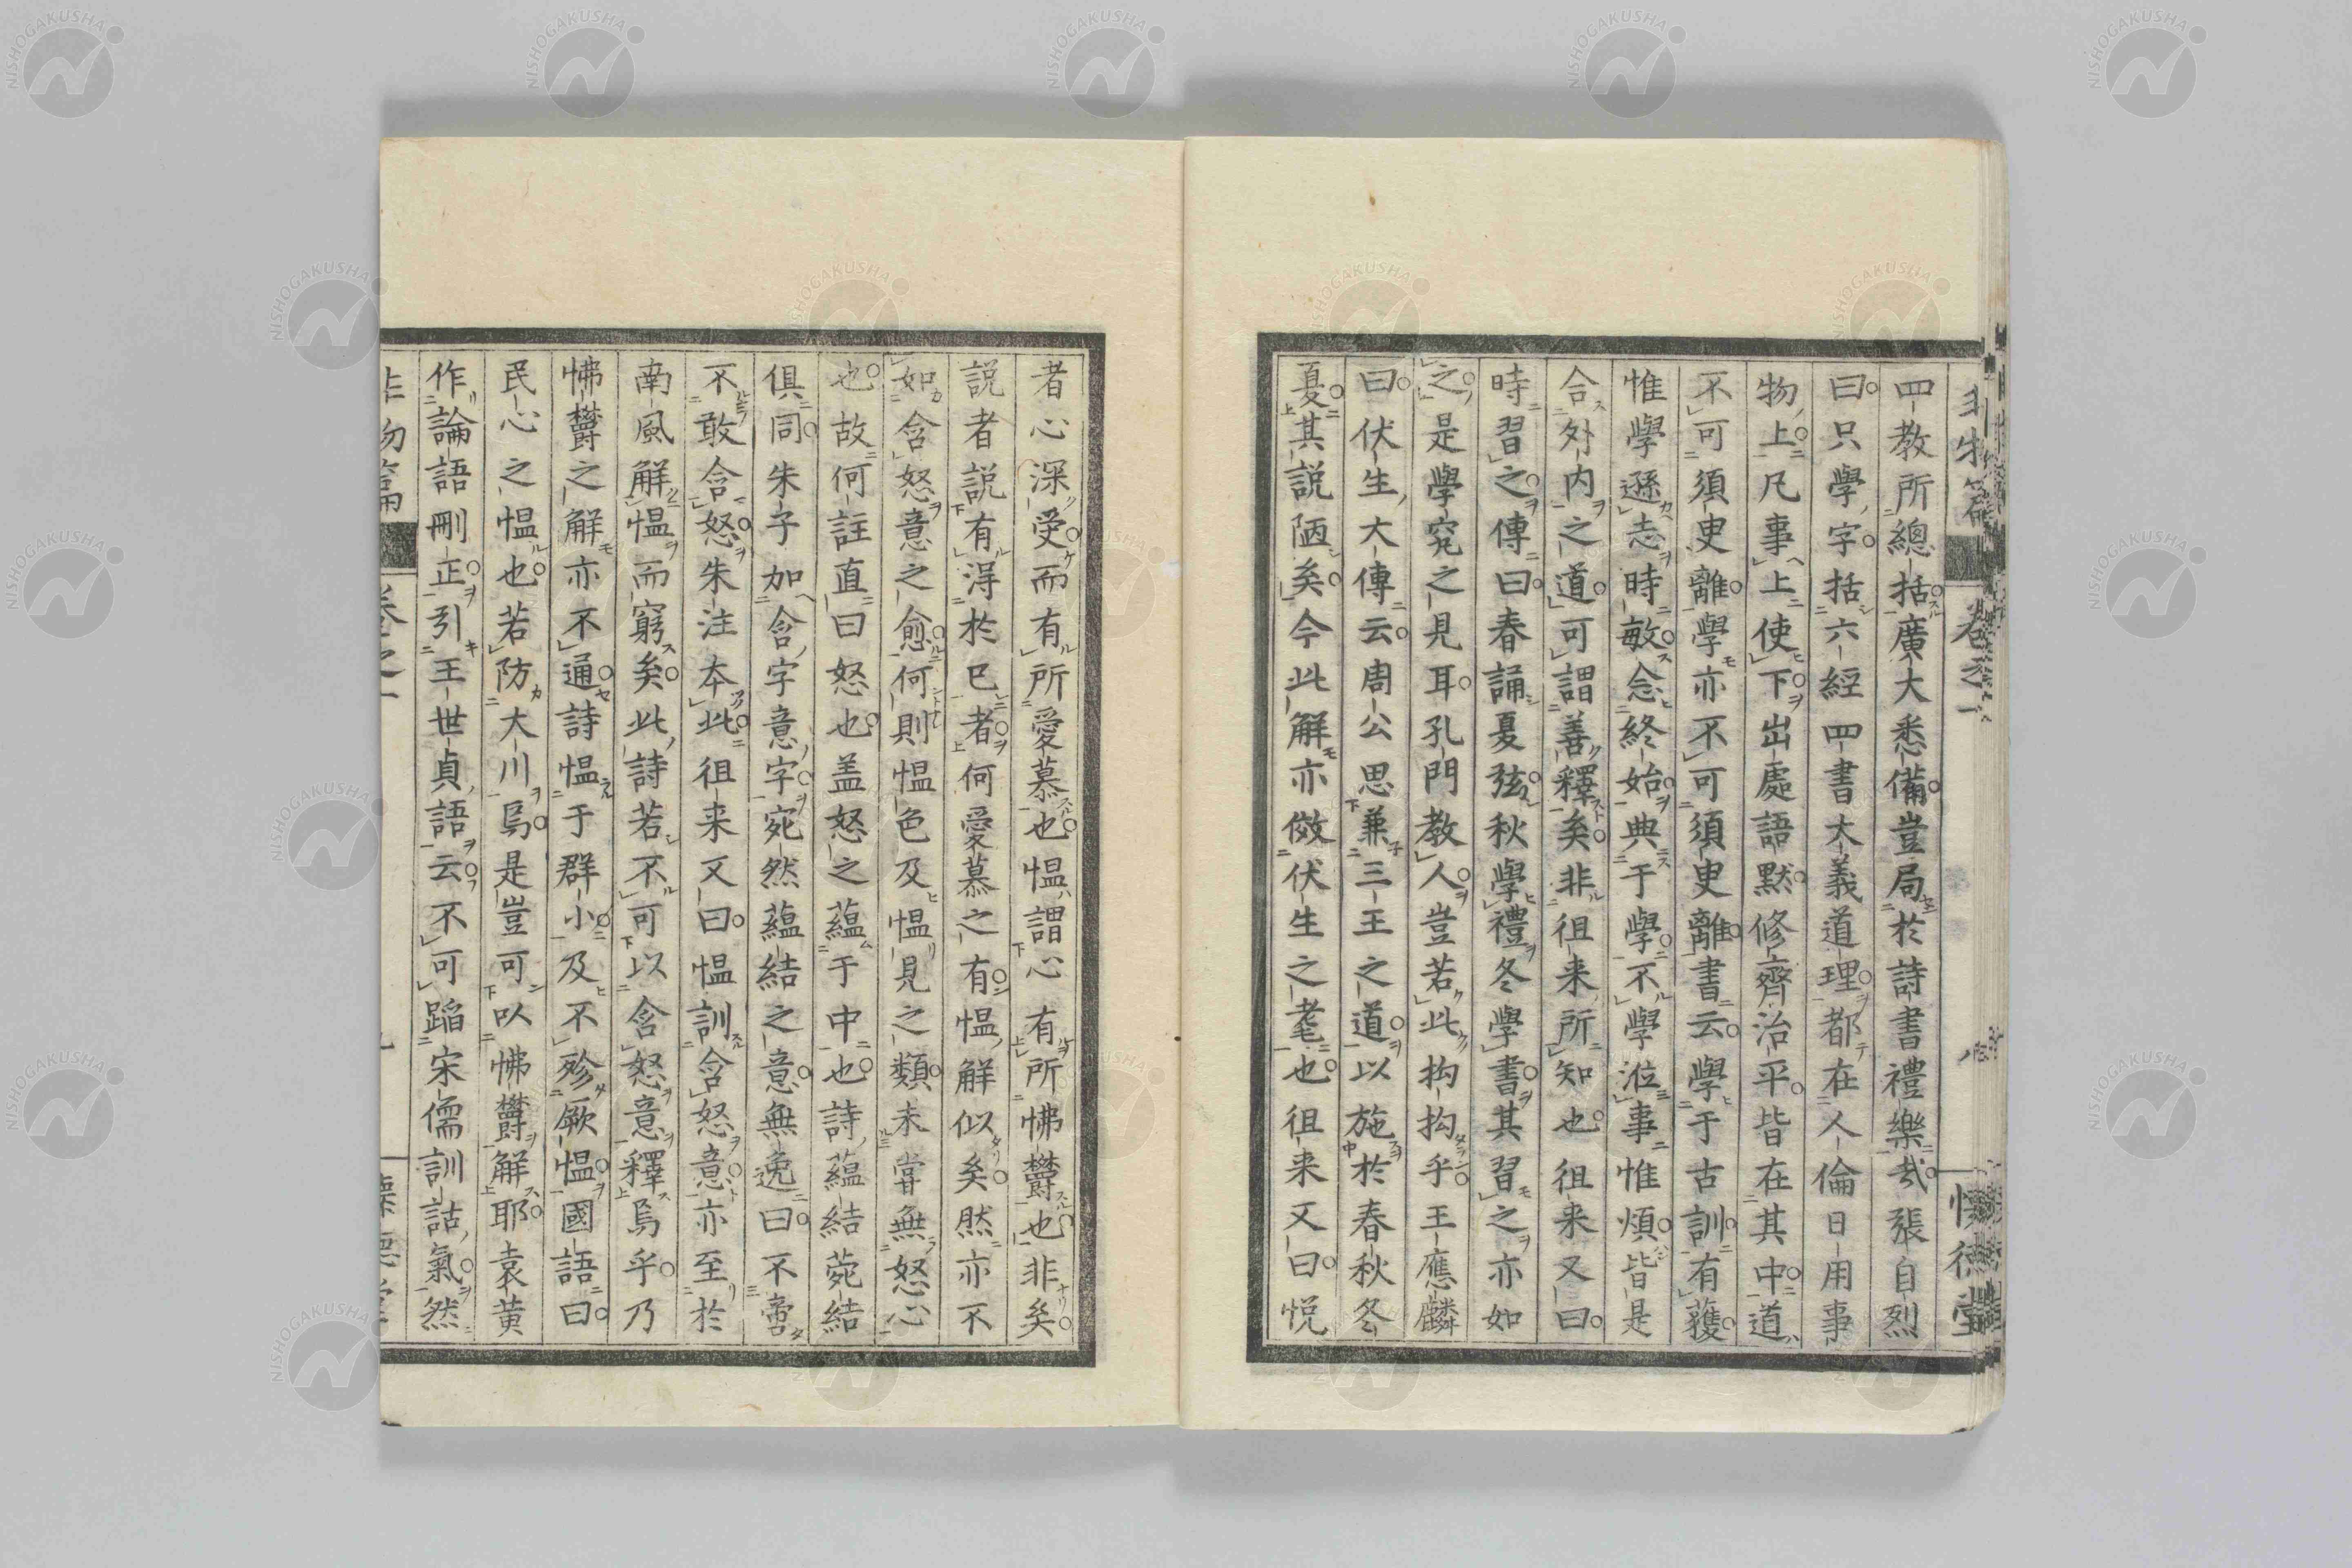 四教所總括廣大悉備豈局於詩書禮樂哉張自烈
曰只學字括六經四書大義道理都在人倫日用事
物上凡事上使下出處語默修齊治平皆在其中道
不可須臾離學亦不可須臾離書云學于古訓有獲
惟學遜志時敏念終始典于學不學涖事惟煩皆是
合外内之道可謂善釋矣非徂来所知也徂来又曰
時習之傳曰春誦夏弦秋學禮冬學書其習之亦如
之是學究之見耳孔門教人豈若此拘拘乎王應麟
曰伏生大傳云周公思兼三王之道以施於春秋冬
夏其説陋矣今此解亦倣伏生之耄也徂来又曰悦
者心深受而有所愛慕也慍謂心有所怫欝也非矣
説者説有淂於已者何愛慕之有慍解似矣然亦不
如含怒意之愈何則慍色及慍見之類未嘗無怒心
也故何註直曰怒也盖怒之蘊于中也詩蘊結菀結
俱同朱子加含字意字宛然蘊結之意無逸曰不啻
不敢含怒朱注夲此徂来又曰慍訓含怒意亦至於
南風解慍而窮矣此詩若不可以含怒意釋焉乎乃
怫欝之解亦不通詩慍于群小及不殄厥慍國語曰
民心之慍也若防大川焉是豈可以怫欝解耶袁黄
作論語刪正引王世貞語云不可蹈宋儒訓詁氣然
非物篇
卷之一
八
懐徳堂
非物篇
卷之一
九
懐徳堂
NISHOGAKUSHA